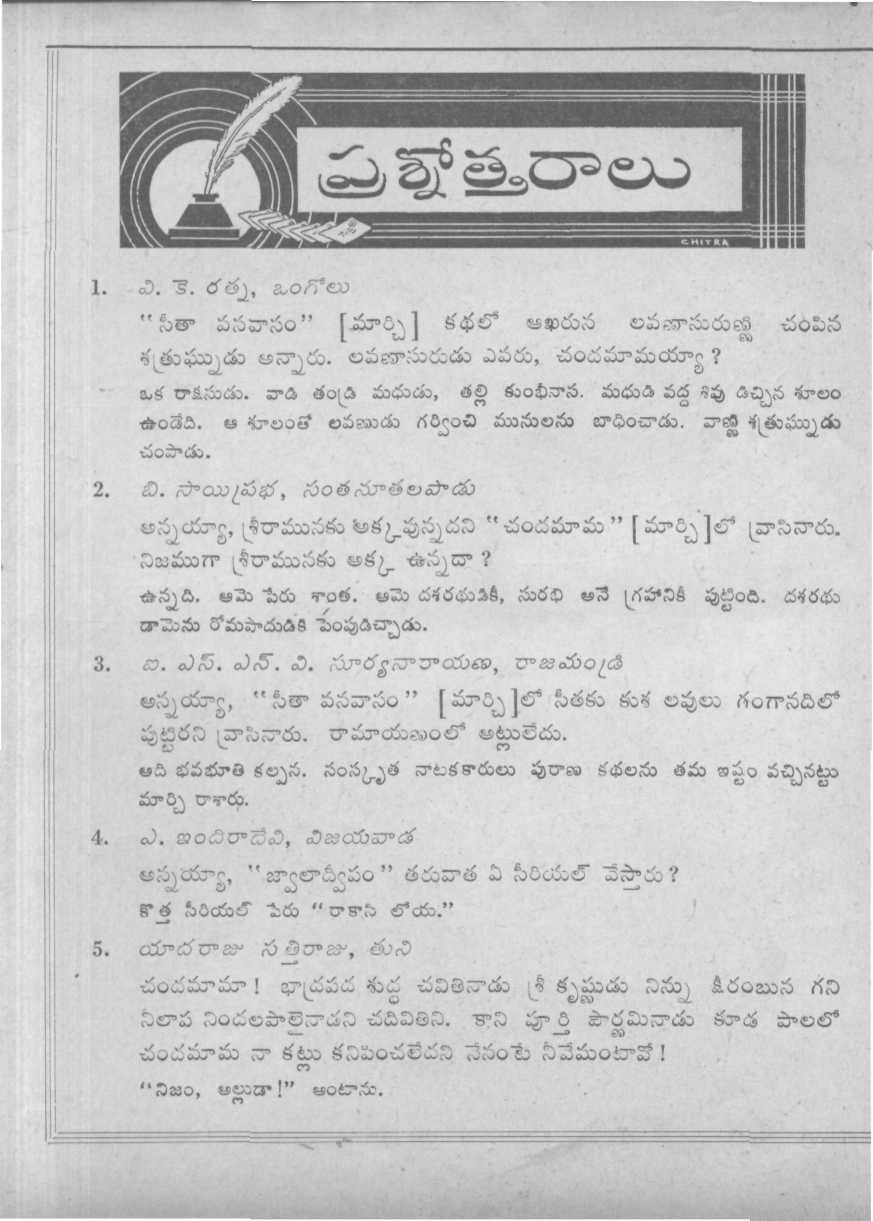 ప్రశ్నోత్తరాలు
CHITRA
1. వి. కె. రత్న, ఒంగోలు
“సీతా వనవాసం” [మార్చి] కథలో ఆఖరున లవణాసురుణ్ణి చంపిన
శత్రుఘ్నుడు అన్నారు. లవణాసురుడు ఎవరు, చందమామయ్యా ?
ఒక రాక్షసుడు. వాడి తండ్రి మధుడు, తల్లి కుంభీనాస. మధుడి వద్ద శివు డిచ్చిన శూలం
ఉండేది. ఆ శూలంతో లవణుడు గర్వించి మునులను బాధించాడు. వాణ్ణి శత్రుఘ్నుడు
చంపాడు.
2. బి. సాయిప్రభ, సంతనూతలపాడు
అన్నయ్యా, శ్రీరామునకు అక్కవున్నదని “చందమామ” [మార్చి]లో వ్రాసినారు.
నిజముగా శ్రీరామునకు అక్క ఉన్నదా ?
ఉన్నది. ఆమె పేరు శాంత. ఆమె దశరథుడికీ, సురభి అనే గ్రహానికీ పుట్టింది. దశరథు
డామెను రోమపాదుడికి పెంపుడిచ్చాడు.
3. ఐ. ఎస్. ఎన్. వి. సూర్యనారాయణ, రాజమండ్రి
అన్నయ్యా, “సీతా వనవాసం” [మార్చి]లో సీతకు కుశ లవులు గంగానదిలో
పుట్టిరని వ్రాసినారు. రామాయణంలో అట్లులేదు.
అది భవభూతి కల్పన. సంస్కృత నాటకకారులు పురాణ కథలను తమ ఇష్టం వచ్చినట్టు
మార్చి రాశారు.
4. ఎ. ఇందిరాదేవి, విజయవాడ
అన్నయ్యా, “జ్వాలాద్వీపం” తరువాత ఏ సీరియల్ వేస్తారు ?
కొత్త సీరియల్ పేరు “రాకాసి లోయ.”
5. యాదరాజు సత్తిరాజు, తుని
చందమామా ! భాద్రపద శుద్ధ చవితినాడు శ్రీ కృష్ణుడు నిన్ను క్షీరంబున గని
నీలాప నిందలపాలైనాడని చదివితిని. కాని పూర్తి పౌర్ణమినాడు కూడ పాలలో
చందమామ నా కట్లు కనిపించలేదని నేనంటే నీవేమంటావో !
“నిజం, అల్లుడా !” అంటాను.